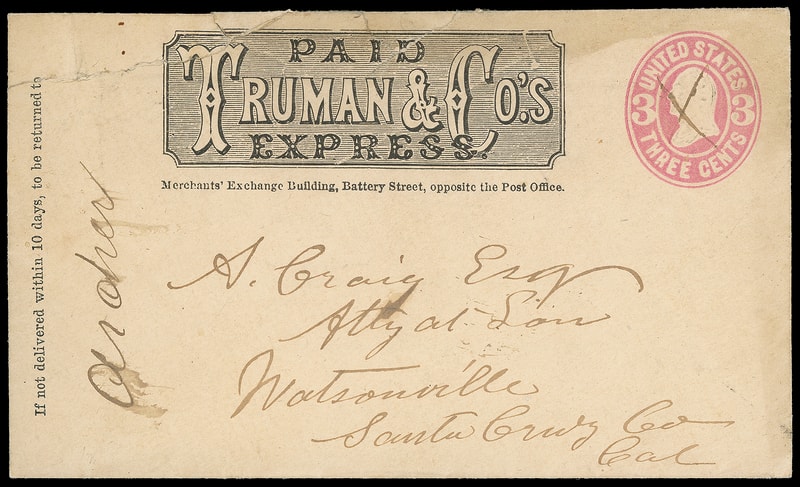 PAID
TRUMAN & CO.'S
EXPRESS.
Merchants' Exchange Building, Battery Street, opposite the Post Office.
UNITED STATES
3 3
THREE CENTS
If not delivered within 10 days, to be returned to
A. Craig Esq
Atty at Law
Watsonville
Santa Cruz Co
Cal